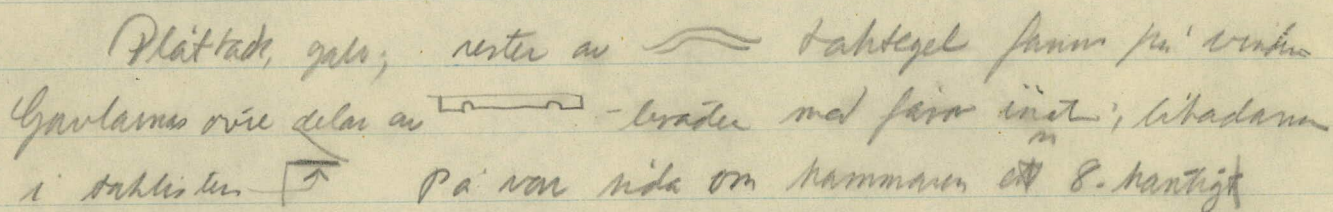 Plåttack, galv; rester av taktegel fanns på vinden
Gavlarnas övre delar av -bräder med fåra inåt, likadana
i taklisten På var sida om kammaren en 8-kantig